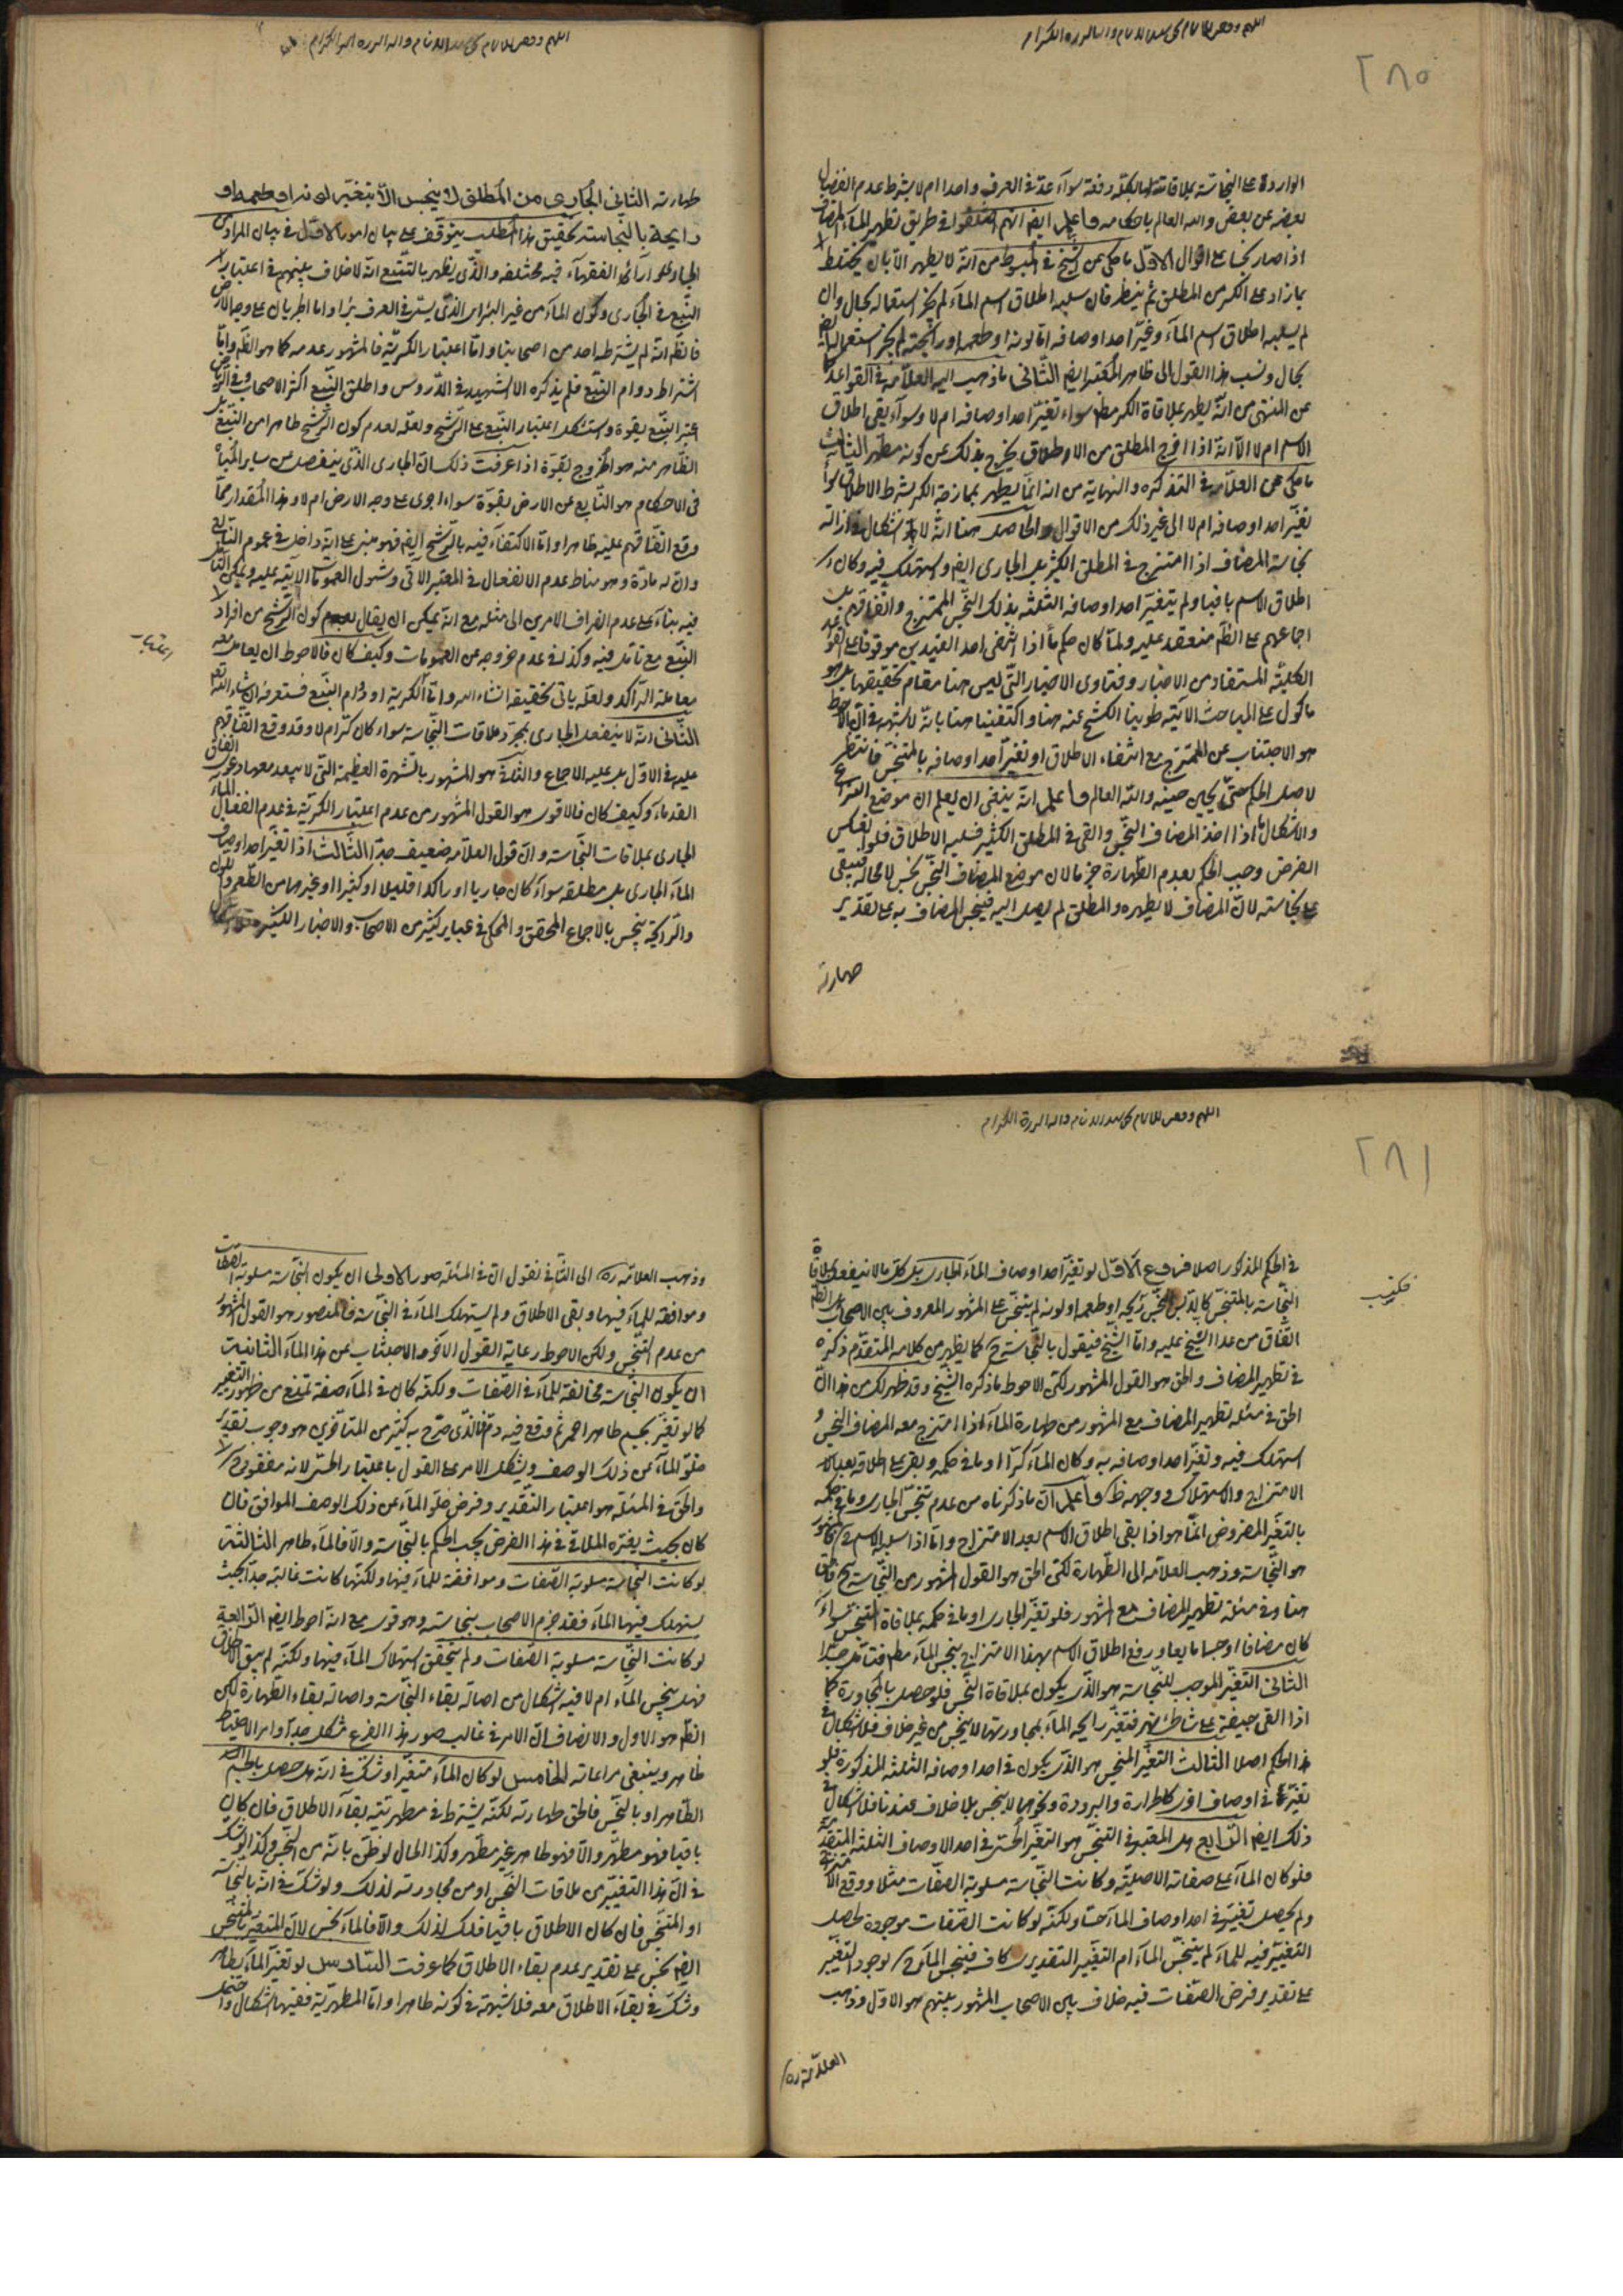 ٢٨٥
الواردة على النجاسة بملاقاتها بالكلية دفعة سواء عدّ في العرف واحدا ام لا بشرط عدم انفصال
بعضه عن بعض والله العالم باحكامه واعلم ايض انهم اختلفوا في طريق تطهير الماء المضاف
اذا صار نجسا على اقوال الاول ما حكي عن الشيخ في المبسوط من انه لا يطهر الا بان يختلط
بما زاد على الكر من المطلق ثم ينظر فان سلبه اطلاق اسم الماء لم يجز استعماله بحال وان
لم يسلبه اطلاق اسم الماء وغيّر احد اوصافه اما لونه او طعمه او رائحته لم يجز استعماله ايض
بحال ونسب هذا القول الى ظاهر المعتبر ايض الثاني ما ذهب اليه العلامة في القواعد
عن المنتهى من انه يطهر بملاقاة الكر مطلقا سواء تغيّر احد اوصافه ام لا وسواء بقي اطلاق
الاسم ام لا الا انه اذا اخرج المطلق من الاطلاق يخرج بذلك عن كونه مطهرا الثالث
ما حكي عن العلامة في التذكرة والنهاية من انه انما يطهر بممازجة الكر بشرط الاطلاق سواء
تغيّر احد اوصافه ام لا الى غير ذلك من الاقوال والحاصل هنا انه لا اشكال في ازالة
نجاسة المضاف اذا امتزج في المطلق الكثير بل الجاري ايض واستهلك فيه وكان
اطلاق الاسم باقيا ولم يتغيّر احد اوصافه الثلثة بذلك النجس الممتزج واتفاقهم بل
اجماعهم على الظ منعقد عليه ولما كان حكم ما اذا انتفى احد القيدين موقوفا على القواعد
الكلية المستفاد من الاخبار وفتاوى الاخيار التي ليس هنا مقام تحقيقها بل هو
ماكول على المباحث الآتية طوينا الكشح عنه هنا واكتفينا هنا بانه لا شبهة في ان الاحوط
هو الاجتناب عن الممتزج مع انتفاء الاطلاق او تغيّر احد اوصافه بالمتنجّس فانتظر
لاصل الحكم حتى يجيئ حينه والله العالم واعلم انه ينبغي ان يعلم ان موضع النزاع
والاشكال ما اذا اخذ المضاف النجس والقي في المطلق الكثير فسلبه الاطلاق فلو انعكس
الفرض وجب الحكم بعدم الطهارة جزما لان موضع المضاف النجس نجس لا محالة فيبقى
على نجاسته لان المضاف لا يطهره والمطلق لم يصل اليه فينجس المضاف به على تقدير
طهارته
طهارته الثاني الجاري من المطلق لا ينجس الا بتغيّر لونه او طعمه او
رايحة بالنجاسة تحقيق هذا المطلب يتوقف على بيان امور الاول في بيان المراد من
الجاري آراء الفقهاء فيه مختلفة والذي يظهر بالتتبع انه لا خلاف بينهم في اعتبار
النبع في الجاري وكون الماء من غير البئر الذي يسمى في العرف بئرا واما الجريان على وجه الارض
فالظ انه لم يشترطه احد من اصحابنا واما اعتبار الكرية فالمشهور عدمه كما هو الظ واما
اشتراط دوام النبع فلم يذكره الا الشهيد في الدروس واطلق النبع اكثر الاصحاب
اعتبر النبع بقوة واستشكل اعتبار النبع على الرشح ولعله لعدم كون الرشح ظاهرا من النبع
الظاهر منه هو الخروج بقوة اذا عرفت ذلك ان الجاري الذي ينفصل عن ساير المياه
في الاحكام هو النابع عن الارض بقوة سواء جرى على وجه الارض ام لا وهذا المقدار مما
وقع اتفاقهم عليه ظاهرا واما الاكتفاء فيه بالرشح ايض فهو مبني على انه داخل في عموم النابع
وان له مادة وهو مناط عدم الانفعال في المعتبر الآتي وشمول العمومات الآتية عليه ويمكن التأمل
فيه بناء على عدم انصراف الامر الى مثله مع انه يمكن ان يقال بعدم كون الرشح من افراد
النبع مع تامل فيه وكذلك عدم خروجه عن العمومات وكيف كان فالاحوط ان يعامل معه
معاملة الراكد ولعله ياتي تحقيقه انشاء الله واما الكرية او دوام النبع فستعرفه ان شاء الله
الثاني انه لا ينفعل الجاري بمجرد ملاقات النجاسة سواء كان كرا ام لا وقد وقع اتفاقهم
عليه في الاول بل عليه الاجماع والثاني هو المشهور بالشهرة العظيمة التي لا يبعد معها دعوى اتفاق
القدماء وكيف كان فالاقوى هو القول المشهور من عدم اعتبار الكرية في عدم انفعال الماء
الجاري بملاقات النجاسة وان قول العلامة ضعيف جدا الثالث اذا تغيّر احد اوصاف
الماء الجاري بل مطلقه سواء كان جاريا او راكدا قليلا او كثيرا او غيرها من الطعم واللون
والرائحة ينجس بالاجماع المحقق والمحكي في عباير كثير من الاصحاب والاخبار الكثيرة
٢٨١
في الحكم المذكور اصلا فروع الاول لو تغيّر احد اوصاف الماء الجاري بل كل ما لا ينفعل بملاقاة
النجاسة بالمتنجس كالدبس النجس رايحه او طعمه او لونه لم ينجس على المشهور المعروف بين الاصحاب بل الظ
اتفاق من عدا الشيخ عليه واما الشيخ فيقول بالنجاسة ح كما يظهر من كلامه المتقدم ذكره
في تطهير المضاف والحق هو القول المشهور لكن الاحوط ما ذكره الشيخ وقد ظهر لك من هذا ان
الحق في مسئلة تطهير المضاف مع المشهور من طهارة الماء اذا امتزج معه المضاف النجس و
استهلك فيه وتغيّر احد اوصافه به وكان الماء كرا او ما في حكمه وبقي على اطلاقه بعد
الامتزاج والاستهلاك ووجهه ظ واعلم ان ما ذكرناه من عدم تنجس الجاري وما في حكمه
بالتغيّر المفروض انما هو اذا بقي اطلاق الاسم بعد الامتزاج واما اذا سلبه الاسم فالمشهور
هو النجاسة وذهب العلامة الى الطهارة لكن الحق هو القول المشهور من النجاسة ح فالحق
هنا وفي مسئلة تطهير المضاف مع المشهور فلو تغيّر الجاري او ما في حكمه بملاقاة المتنجس سواء
كان مضافا او جسما مايعا ورفع اطلاق الاسم بهذا الامتزاج ينجس الماء مطلقا فتامل جدا
الثاني التغيّر الموجب للنجاسة هو الذي يكون بملاقاة النجس فلو حصل بالمجاورة كما
اذا القي جيفة على شاطئ نهر فتغيّر رايحة الماء بمجاورتها لا ينجس من غير خلاف فلا اشكال في
هذا الحكم اصلا الثالث التغيّر المنجس هو الذي يكون في احد اوصافه الثلثة المذكورة فلو
تغيّر في اوصاف اخر كالحرارة والبرودة ونحوهما لا ينجس بلا خلاف عندنا فلا اشكال في
ذلك ايض الرابع هل المعتبر في التنجس هو التغيّر الحسي في احد الاوصاف الثلثة المتقدمة
فلو كان الماء على صفاته الاصلية وكانت النجاسة مسلوبة الصفات مثلا ووقع الامتزاج
ولم يحصل تغيّر في احد اوصاف الماء حسا ولكنه لو كانت الصفات موجودة لحصل
التغيّر فيه للماء لم ينجس الماء ام التغيّر التقديري كاف فينجس الماء ح لوجود التغيّر
على تقدير فرض الصفات فيه خلاف بين الاصحاب المشهور بينهم هو الاول وذهب
العلامة ره
وذهب العلامة ره الى الثاني فنقول ان في المسئلة صور الاولى ان يكون النجاسة مسلوبة الصفات
وموافقة للماء فيها وبقي الاطلاق ولم يستهلك الماء في النجاسة فالمنصور هو القول المشهور
من عدم التنجس ولكن الاحوط رعاية القول الآخر والاجتناب عن هذا الماء الثانية
ان يكون النجاسة مخالفة للماء في الصفات ولكنه كان في الماء صفة تمنع من ظهور التغيّر
كما لو تغيّر بجسم طاهر احمر ثم وقع فيه دم فالذي صرح به كثير من المتأخرين هو وجوب تقدير
خلوّ الماء عن ذلك الوصف ويشكل الامر على القول باعتبار الحسّ لانه مفقود ح
والحق في المسئلة هو اعتبار التقدير وفرض خلوّ الماء عن ذلك الوصف الموافق فان
كان بحيث يغيّره الملاقي في هذا الفرض يجب الحكم بالنجاسة والا فالماء طاهر الثالثة
لو كانت النجاسة مسلوبة الصفات وموافقة للماء فيها ولكنها كانت غالبة جدا بحيث
يستهلك فيها الماء فقد جزم الاصحاب بنجاسته وهو قوي مع انه احوط ايض الرابعة
لو كانت النجاسة مسلوبة الصفات ولم يتحقق استهلاك الماء فيها ولكنه لم يبق الاطلاق
فهل ينجس الماء ام لا فيه اشكال من اصالة بقاء النجاسة واصالة بقاء الطهارة لكن
الظ هو الاول والانصاف ان الامر في غالب صور هذا الفرع مشكل جدا وامر الاحتياط
ظاهر وينبغي مراعاته الخامس لو كان الماء متغيّرا وشكّ في انه هل حصل بالجسم
الطاهر او بالنجس فالحق طهارته لكنه يشترط في مطهريته بقاء الاطلاق فان كان
باقيا فهو مطهر والا فهو طاهر غير مطهر وكذا الحال لو ظن بانه من النجس وكذا لو شك
في ان هذا التغيّر من ملاقات النجس او من مجاورته لذلك ولو شك في انه بالنجاسة
او المتنجس فان كان الاطلاق باقيا فلك لذلك والا فالماء نجس لان المتغيّر بالمتنجس
ايض نجس على تقدير عدم بقاء الاطلاق كما عرفت السادس لو تغيّر الماء بطاهر
وشك في بقاء الاطلاق معه فلا شبهة في كونه طاهرا واما المطهرية ففيها اشكال